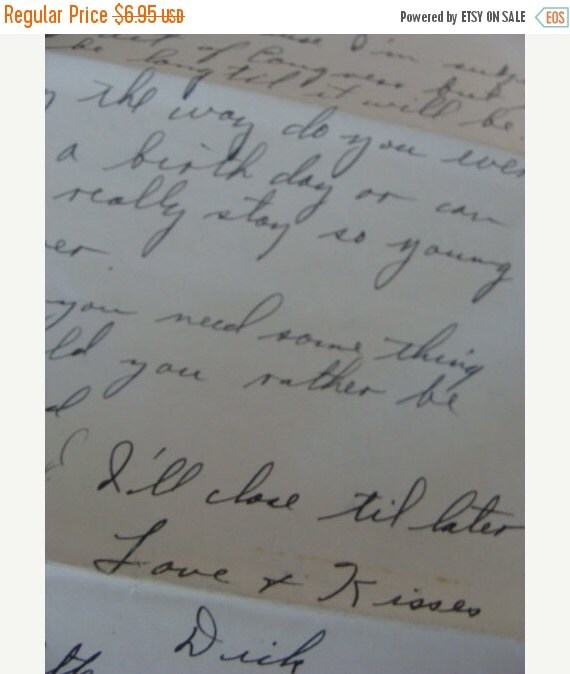 Regular Price $6.95 USD
Powered by ETSY ON SALE EOS
I'm
of Congress but
be long til it will be
the way do you ever
a birth day or can
really stay so young
er
you need some thing
ld you rather be
d
I'll close til later
Love + Kisses
Dick